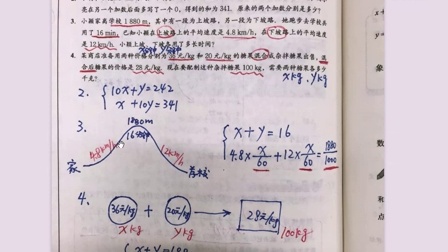 在另一个加数后面多写了一个 0, 得到的和为 341. 原来的两个加数分别是多少?
3. 小颖家离学校 1 880 m, 其中有一段为上坡路, 另一段为下坡路. 她跑步去学校共
用了 16 min, 已知小颖在上坡路上的平均速度是 4.8 km/h, 在下坡路上的平均速度
是 12 km/h. 小颖上坡、下坡各用了多长时间?
4. 某商店准备用两种价格分别为 36 元/kg 和 20 元/kg 的糖果混合成杂拌糖果出售, 混
合后糖果的价格是 28 元/kg. 现在要配制这种杂拌糖果 100 kg, 需要两种糖果各多少
千克?
xkg . ykg
2. 10x+y=242
x+10y=341
3.
1880m
16分钟
4.8km/h
12km/h
家
x+y=16
4.8×x/60+12×x/60=1880/1000
4.
36元/kg + 20元/kg → 28元/kg
xkg ykg 100kg